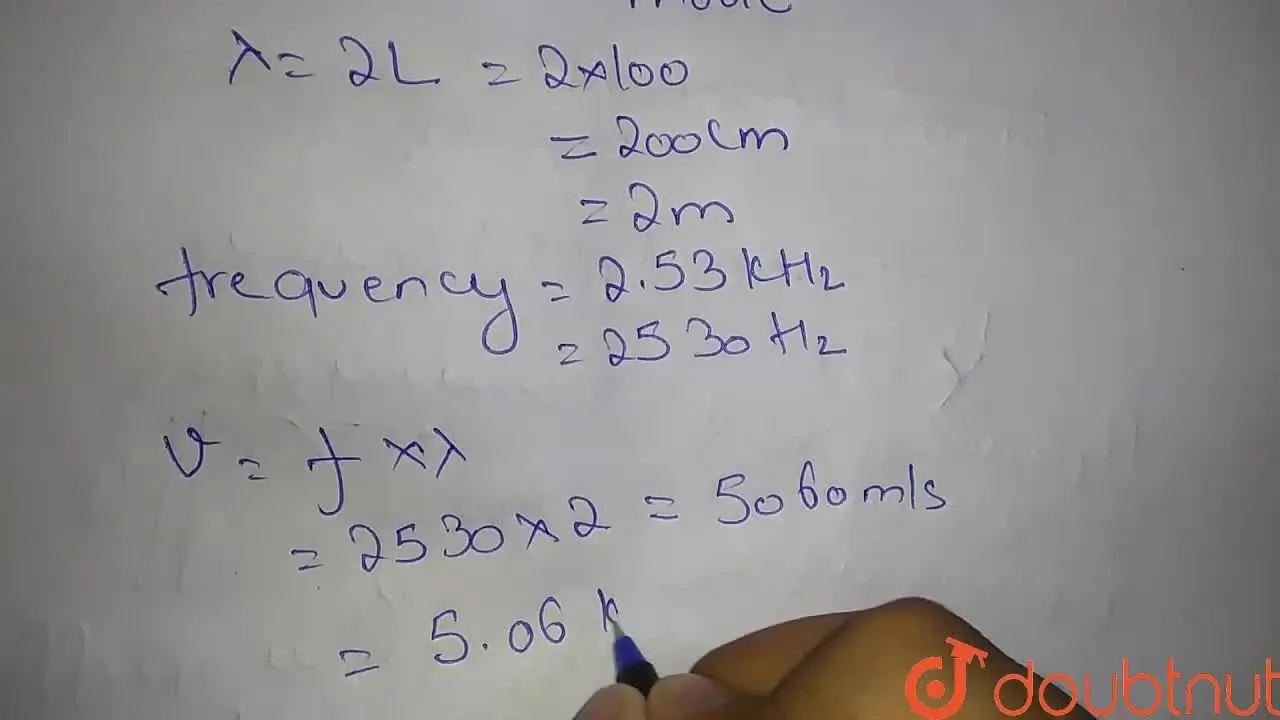 λ = 2L = 2×100
= 200cm
= 2m
frequency = 2.53 kHz
= 2530 Hz
v = f × λ
= 2530 × 2 = 5060 m/s
= 5.06 k
doubtnut